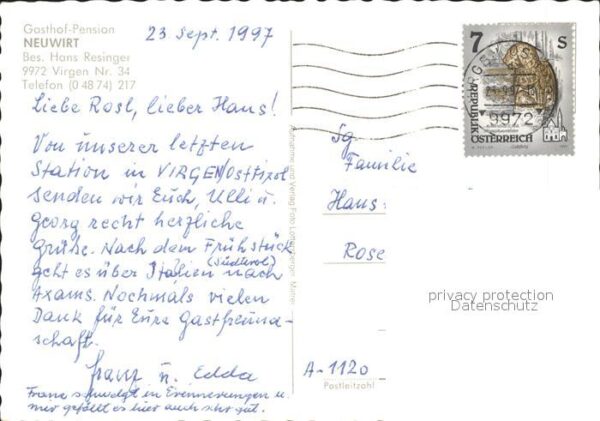 Gasthof-Pension
NEUWIRT
Bes. Hans Resinger
9972 Virgen Nr. 34
Telefon (0 48 74) 217
23. Sept. 1997
Liebe Rosl, lieber Hans!
Von unserer letzten
Station in VIRGEN/Osttirol
senden wir Euch, Ulli u.
Georg recht herzliche
Grüße. Nach dem Frühstück
geht es über Italien (Südtirol) nach
Axams. Nochmals vielen
Dank für Eure Gastfreund-
schaft.
Franz u. Edda
Franz schwelgt in Erinnerungen u.
mir gefällt es hier auch sehr gut.
Aufnahme und Verlag Foto
7 S
REPUBLIK
ÖSTERREICH
9972
Sg
Familie
Hans
Rose
privacy protection
Datenschutz
A-1120
Postleitzahl